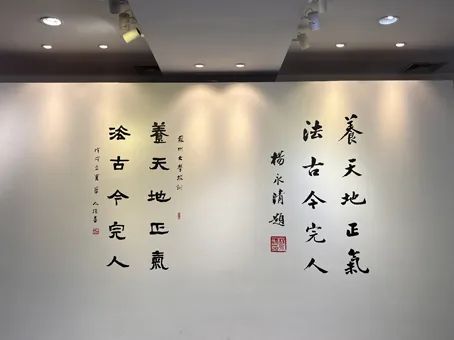 養天地正氣
法古今完人
楊永清題
蘇州大學校訓
養天地正氣
法古今完人
華人德書